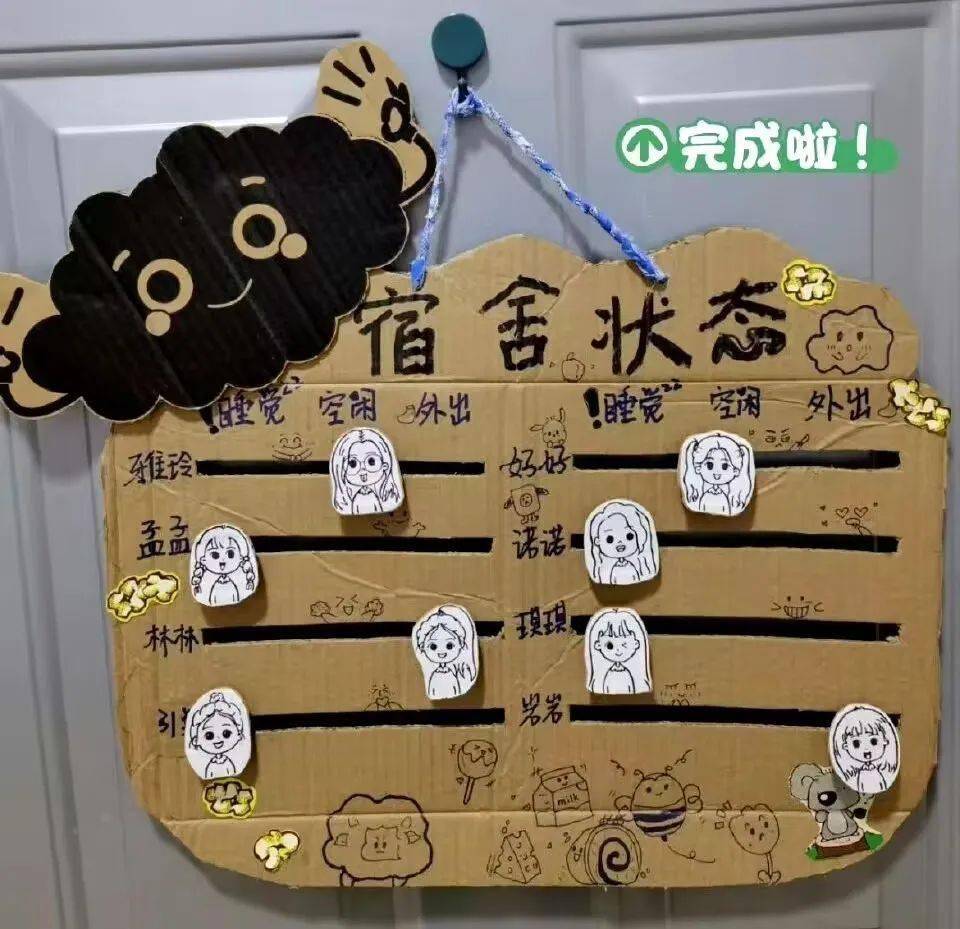 完成啦！
宿舍状态
！睡觉zz 空闲 外出
！睡觉zz 空闲 外出
雅玲
妤妤
孟孟
诺诺
林林
琪琪
引
岩岩
milk